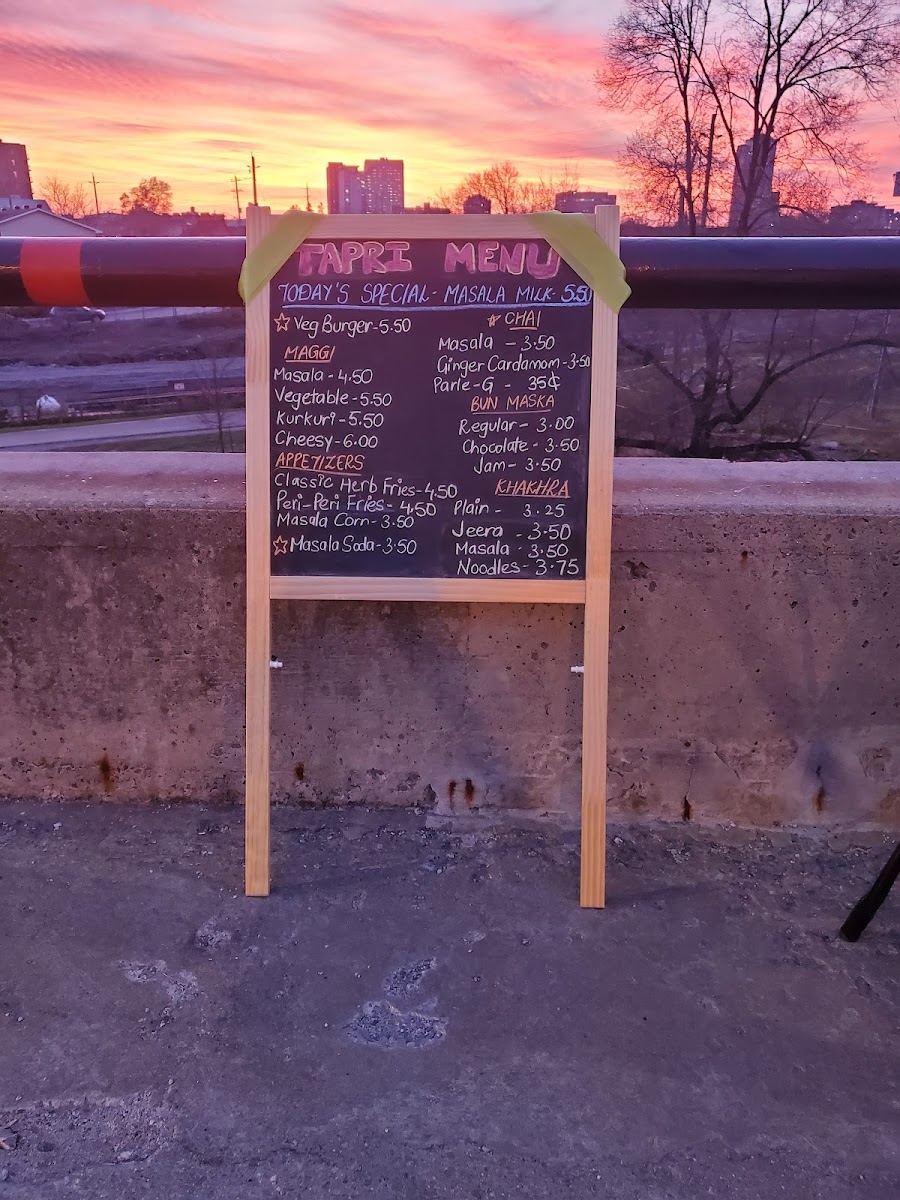 TAPRI MENU
TODAY'S SPECIAL - MASALA MILK - 5.50
Veg Burger - 5.50
MAGGI
Masala - 4.50
Vegetable - 5.50
Kurkuri - 5.50
Cheesy - 6.00
APPETIZERS
Classic Herb Fries - 4.50
Peri-Peri Fries - 4.50
Masala Corn - 3.50
Masala Soda - 3.50
CHAI
Masala - 3.50
Ginger Cardamom - 3.50
Parle-G - 35¢
BUN MASKA
Regular - 3.00
Chocolate - 3.50
Jam - 3.50
KHAKHRA
Plain - 3.25
Jeera - 3.50
Masala - 3.50
Noodles - 3.75